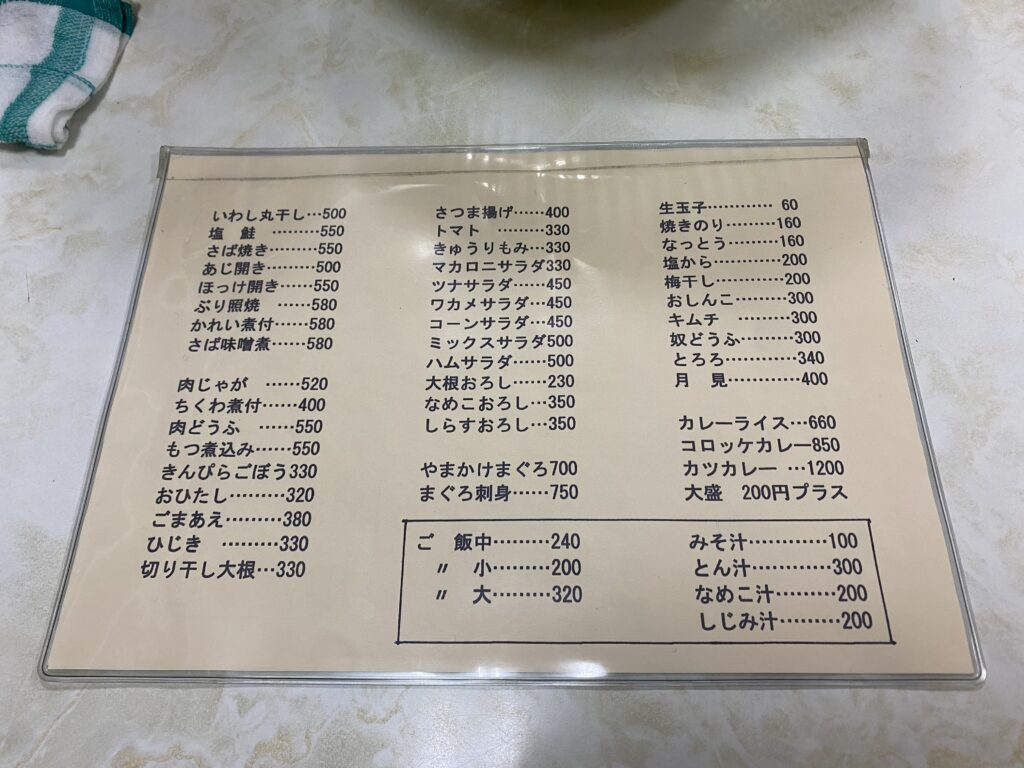 いわし丸干し…500
塩　鮭　………550
さば焼き………550
あじ開き………500
ほっけ開き……550
ぶり照焼　……580
かれい煮付……580
さば味噌煮……580
肉じゃが　……520
ちくわ煮付……400
肉どうふ　……550
もつ煮込み……550
きんぴらごぼう330
おひたし………320
ごまあえ………380
ひじき　………330
切り干し大根…330
さつま揚げ……400
トマト　………330
きゅうりもみ…330
マカロニサラダ330
ツナサラダ……450
ワカメサラダ…450
コーンサラダ…450
ミックスサラダ500
ハムサラダ……500
大根おろし……230
なめこおろし…350
しらすおろし…350
やまかけまぐろ700
まぐろ刺身……750
生玉子………… 60
焼きのり………160
なっとう………160
塩から…………200
梅干し…………200
おしんこ………300
キムチ　………300
奴どうふ………300
とろろ…………340
月　見…………400
カレーライス…660
コロッケカレー850
カツカレー …1200
大盛　200円プラス
ご　飯中………240
〃　小………200
〃　大………320
みそ汁…………100
とん汁…………300
なめこ汁………200
しじみ汁………200